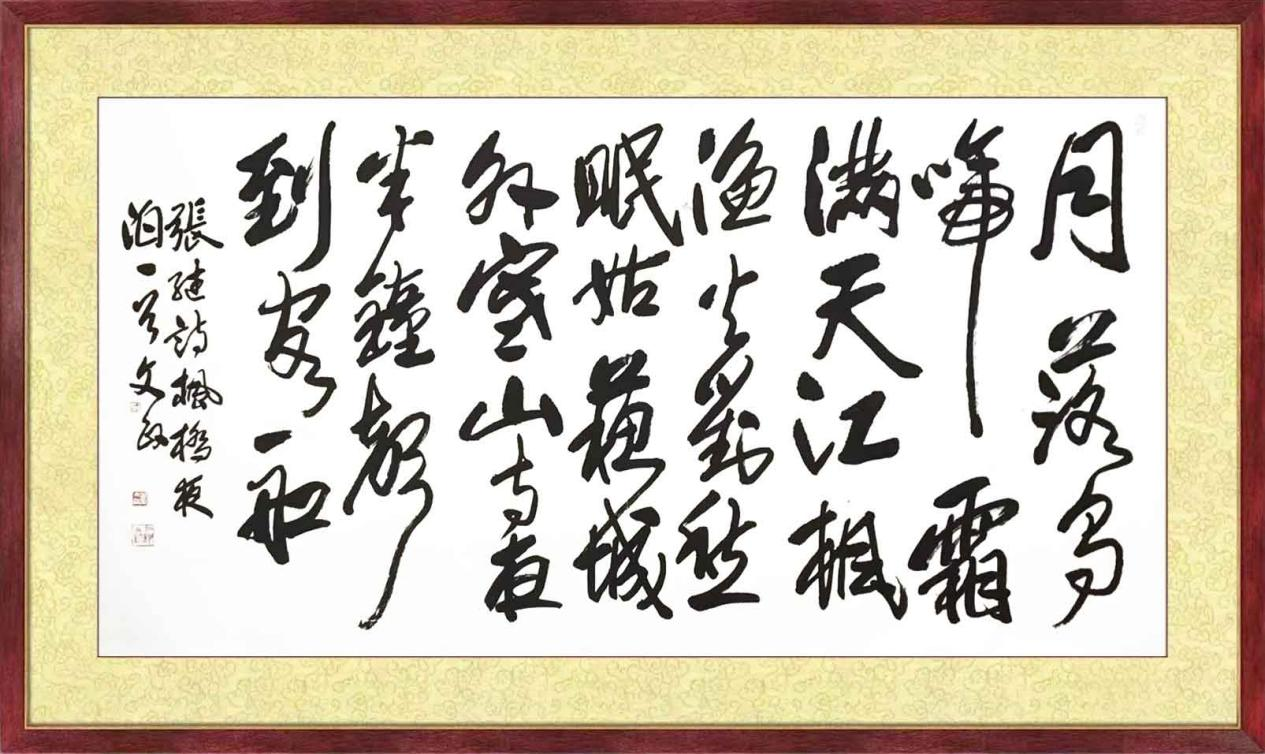 月落烏
啼霜
滿天江楓
漁火對愁
眠姑蘇城
外寒山寺夜
半鐘聲
到客船
張繼詩楓橋夜
泊一首文政